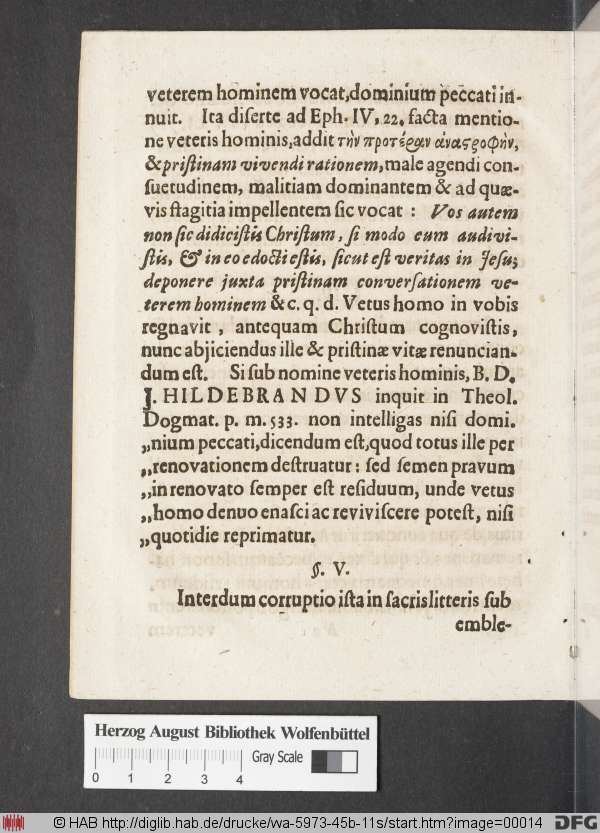 veterem hominem vocat, dominium peccati in-
nuit. Ita diserte ad Eph. IV, 22. facta mentio-
ne veteris hominis, addit τὴν προτέραν ἀναςροφὴν,
& pristinam vivendi rationem, male agendi con-
suetudinem, malitiam dominantem & ad quæ-
vis flagitia impellentem sic vocat : Vos autem
non sic didicistis Christum, si modo eum audivi-
stis, & in eo edocti estis, sicut est veritas in Jesu;
deponere juxta pristinam conversationem ve-
terem hominem & c. q. d. Vetus homo in vobis
regnavit, antequam Christum cognovistis,
nunc abjiciendus ille & pristinæ vitæ renuncian-
dum est. Si sub nomine veteris hominis, B. D.
J. HILDEBRANDVS inquit in Theol.
Dogmat. p. m. 533. non intelligas nisi domi-
„nium peccati, dicendum est, quod totus ille per
„renovationem destruatur: sed semen pravum
„in renovato semper est residuum, unde vetus
„homo denuo enasci ac reviviscere potest, nisi
„quotidie reprimatur.
§. V.
Interdum corruptio ista in sacris litteris sub
emble-
Herzog August Bibliothek Wolfenbüttel
Gray Scale
0 1 2 3 4
© HAB http://diglib.hab.de/drucke/wa-5973-45b-11s/start.htm?image=00014
DFG